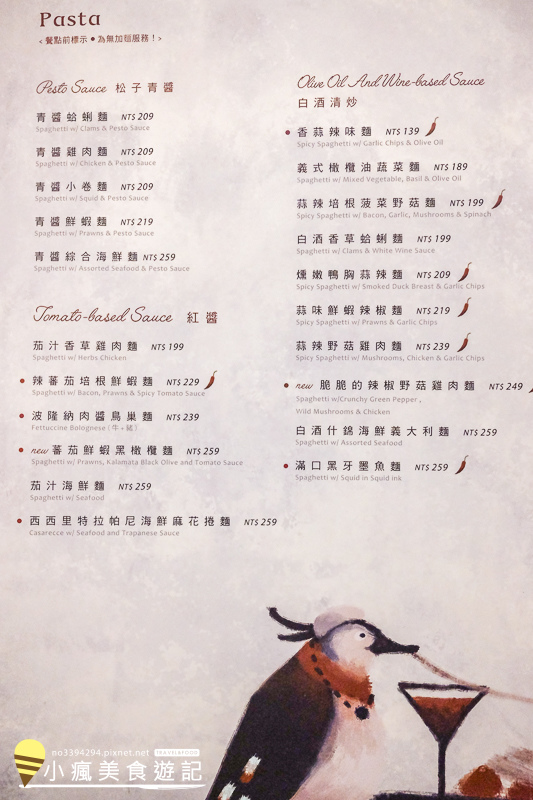 Pasta
<餐點前標示●為無加麵服務！>
Pesto Sauce 松子青醬
青醬蛤蜊麵 NT$ 209
Spaghetti w/ Clams & Pesto Sauce
青醬雞肉麵 NT$ 209
Spaghetti w/ Chicken & Pesto Sauce
青醬小卷麵 NT$ 209
Spaghetti w/ Squid & Pesto Sauce
青醬鮮蝦麵 NT$ 219
Spaghetti w/ Prawns & Pesto Sauce
青醬綜合海鮮麵 NT$ 259
Spaghetti w/ Assorted Seafood & Pesto Sauce
Tomato-based Sauce 紅醬
茄汁香草雞肉麵 NT$ 199
Spaghetti w/ Herbs Chicken
● 辣蕃茄培根鮮蝦麵 NT$ 229
Spaghetti w/ Bacon, Prawns & Spicy Tomato Sauce
● 波隆納肉醬鳥巢麵 NT$ 239
Fettuccine Bolognese (牛+豬)
● new 蕃茄鮮蝦黑橄欖麵 NT$ 259
Spaghetti w/ Prawns, Kalamata Black Olive and Tomato Sauce
茄汁海鮮麵 NT$ 259
Spaghetti w/ Seafood
● 西西里特拉帕尼海鮮麻花捲麵 NT$ 259
Casarecce w/ Seafood and Trapanese Sauce
Olive Oil And Wine-based Sauce
白酒清炒
● 香蒜辣味麵 NT$ 139
Spicy Spaghetti w/ Garlic Chips & Olive Oil
義式橄欖油蔬菜麵 NT$ 189
Spaghetti w/ Mixed Vegetable, Basil & Olive Oil
蒜辣培根菠菜野菇麵 NT$ 199
Spicy Spaghetti w/ Bacon, Garlic, Mushrooms & Spinach
白酒香草蛤蜊麵 NT$ 199
Spaghetti w/ Clams & White Wine Sauce
燻嫩鴨胸蒜辣麵 NT$ 209
Spicy Spaghetti w/ Smoked Duck Breast & Garlic Chips
蒜味鮮蝦辣椒麵 NT$ 219
Spicy Spaghetti w/ Prawns & Garlic Chips
蒜辣野菇雞肉麵 NT$ 239
Spicy Spaghetti w/ Mushrooms, Chicken & Garlic Chips
● new 脆脆的辣椒野菇雞肉麵 NT$ 249
Spaghetti w/Crunchy Green Pepper ,
Wild Mushrooms & Chicken
白酒什錦海鮮義大利麵 NT$ 259
Spaghetti w/ Assorted Seafood
● 滿口黑牙墨魚麵 NT$ 259
Spaghetti w/ Squid in Squid ink
no3394294.pixnet.net TRAVEL&FOOD
小瘋美食遊記